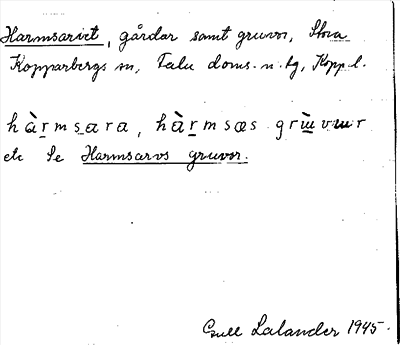 Harmsarvet, gårdar samt gruvor, Stora
Kopparbergs sn, Falu doms. n. tg, Kopp. l.
hàrmsara, hàrmsæs
etc Se Harmsarvs gruvor.
Gull Lalander 1945.